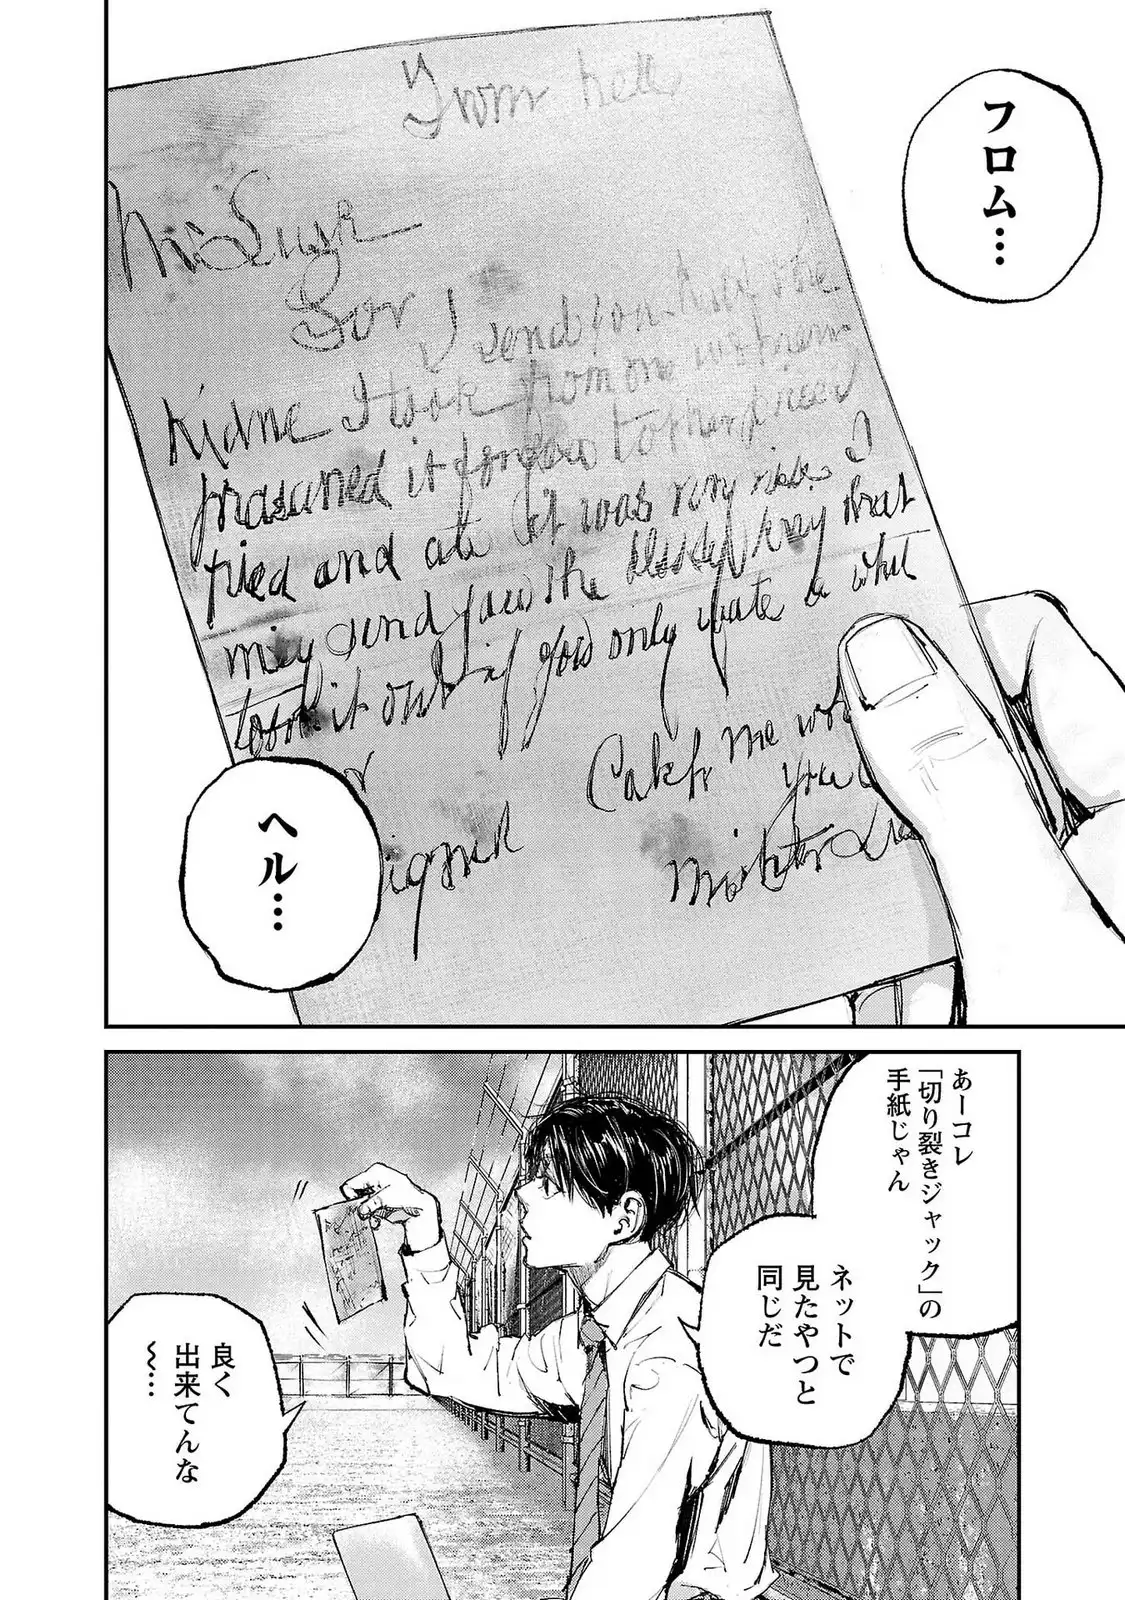 フロム…
From hell
Mr Lusk
Sor
I send you half the
Kidne I took from one women
prasarved it for you tother piece I
fried and ate it was very nise. I
may send you the bloody knif that
took it out if you only wate a whil
Catch me w
you
Mishter
ヘル…
あーコレ
「切り裂きジャック」の
手紙じゃん
ネットで
見たやつと
同じだ
良く
出来てんな
〜…